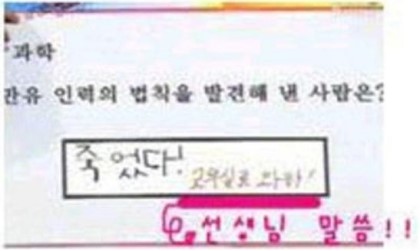 과학
만유 인력의 법칙을 발견해 낸 사람은?
죽었다! 교무실로 와라!
선생님 말씀!!